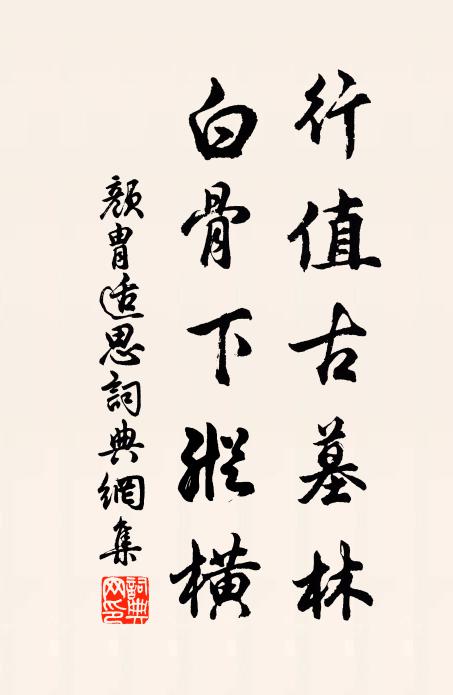 行值古墓林
白骨下縱橫
顏胄适思詞典網集
詞典網印